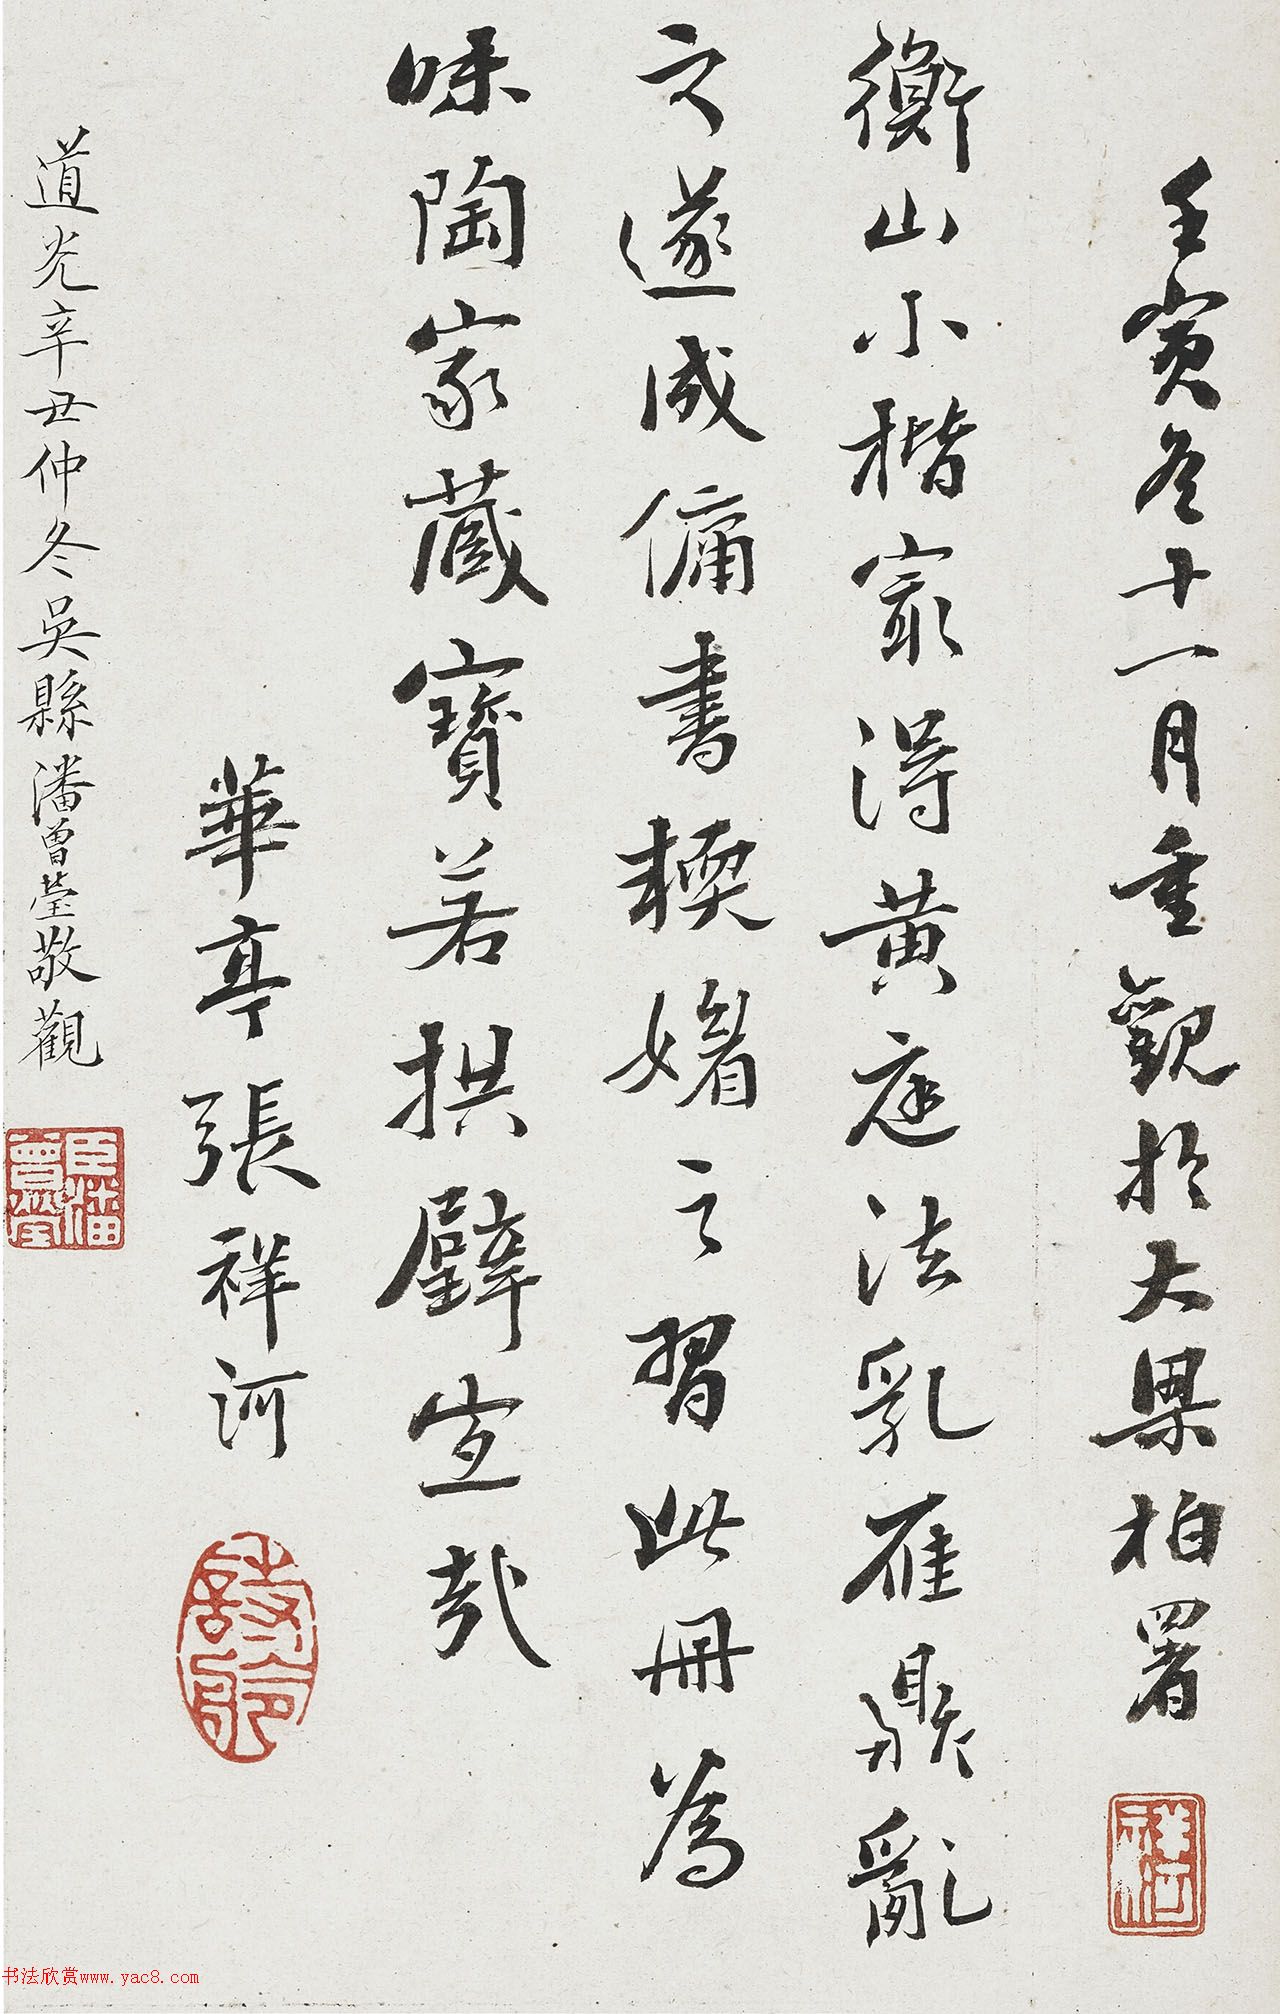 壬寅冬十一月重觀於大梁柏署
祥河
衡山小楷寔得黃庭法乳雁鼎亂
之遂成傭書耎媚之習此冊為
味陶家藏寶若拱璧宜哉
華亭張祥河
詩舲
道光辛丑仲冬吳縣潘曾瑩敬觀
臣潘曾瑩
书法欣赏www.yac8.com